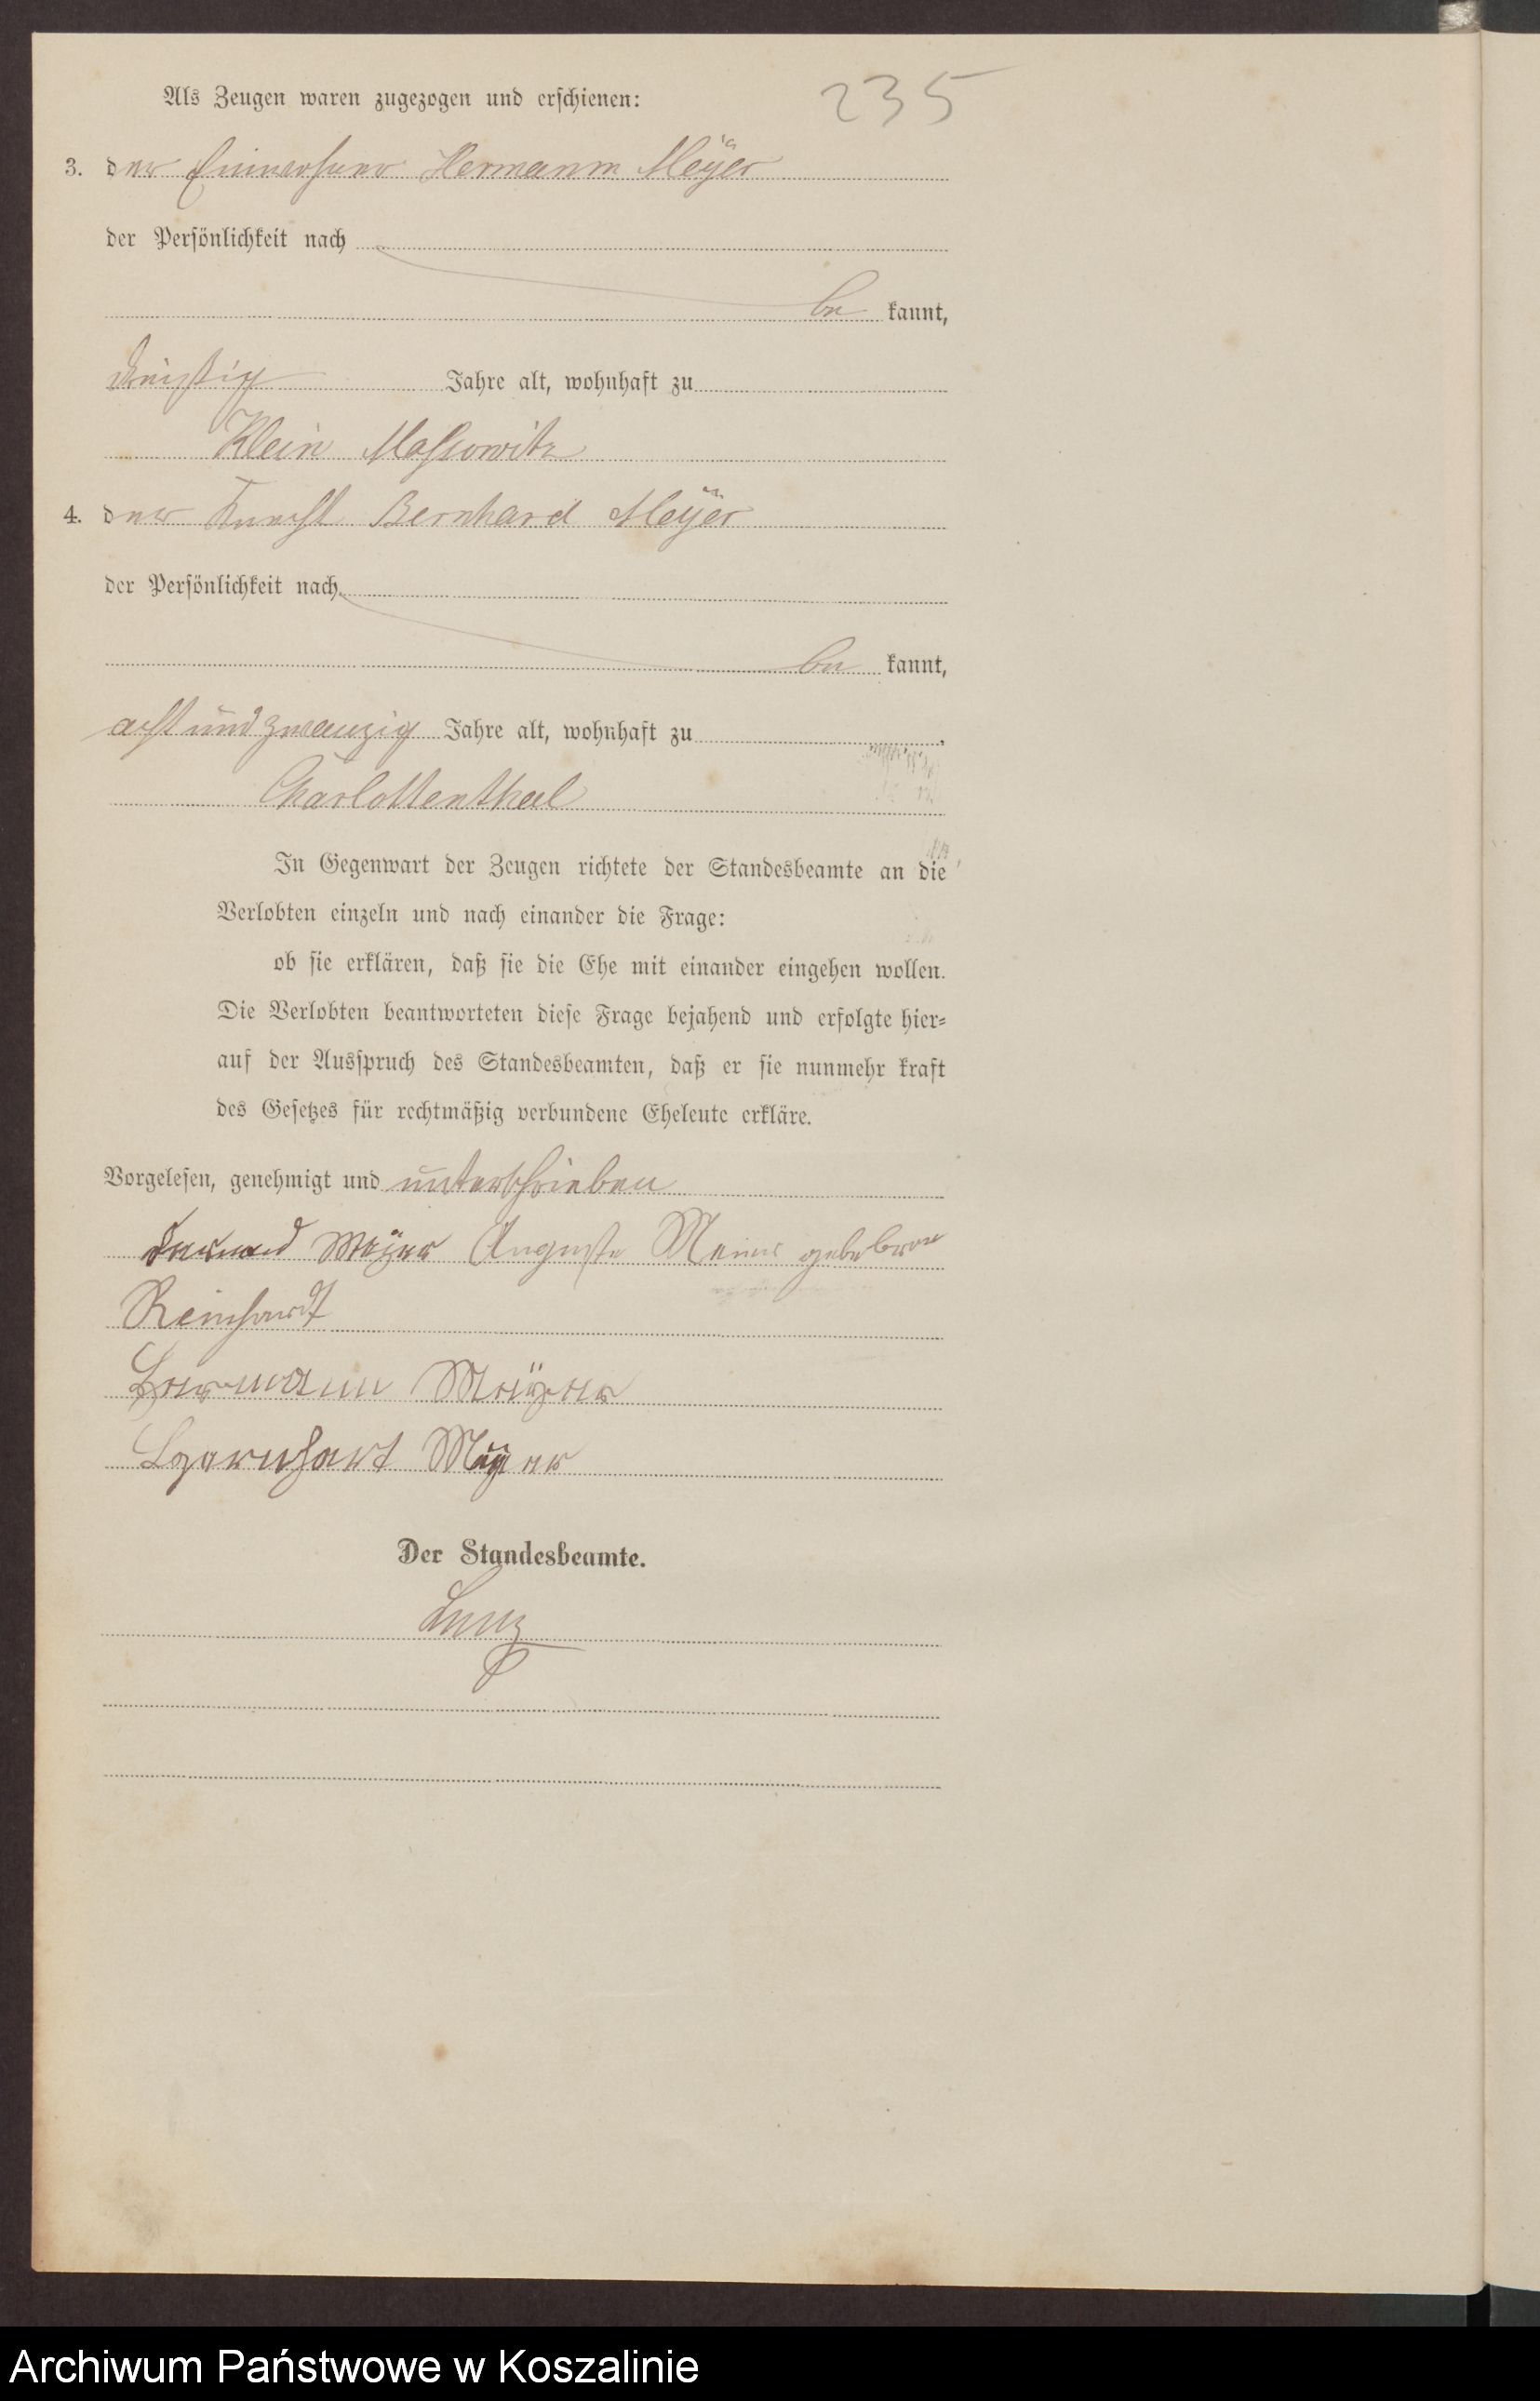 235
Als Zeugen waren zugezogen und erschienen:
3. der Einwohner Hermann Meÿer
der Persönlichkeit nach
be kannt,
dreißig Jahre alt, wohnhaft zu
Klein Massowitz
4. der Knecht Bernhard Meÿer
der Persönlichkeit nach
be kannt,
acht und zwanzig Jahre alt, wohnhaft zu
Charlottenthal
In Gegenwart der Zeugen richtete der Standesbeamte an die
Verlobten einzeln und nach einander die Frage:
ob sie erklären, daß sie die Ehe mit einander eingehen wollen.
Die Verlobten beantworteten diese Frage bejahend und erfolgte hier=
auf der Ausspruch des Standesbeamten, daß er sie nunmehr kraft
des Gesetzes für rechtmäßig verbundene Eheleute erkläre.
Vorgelesen, genehmigt und unterschrieben
Meÿer Auguste geborene
Reinhardt
Hermann Meÿer
Bernhart Meÿer
Der Standesbeamte.
Lenz
Archiwum Państwowe w Koszalinie